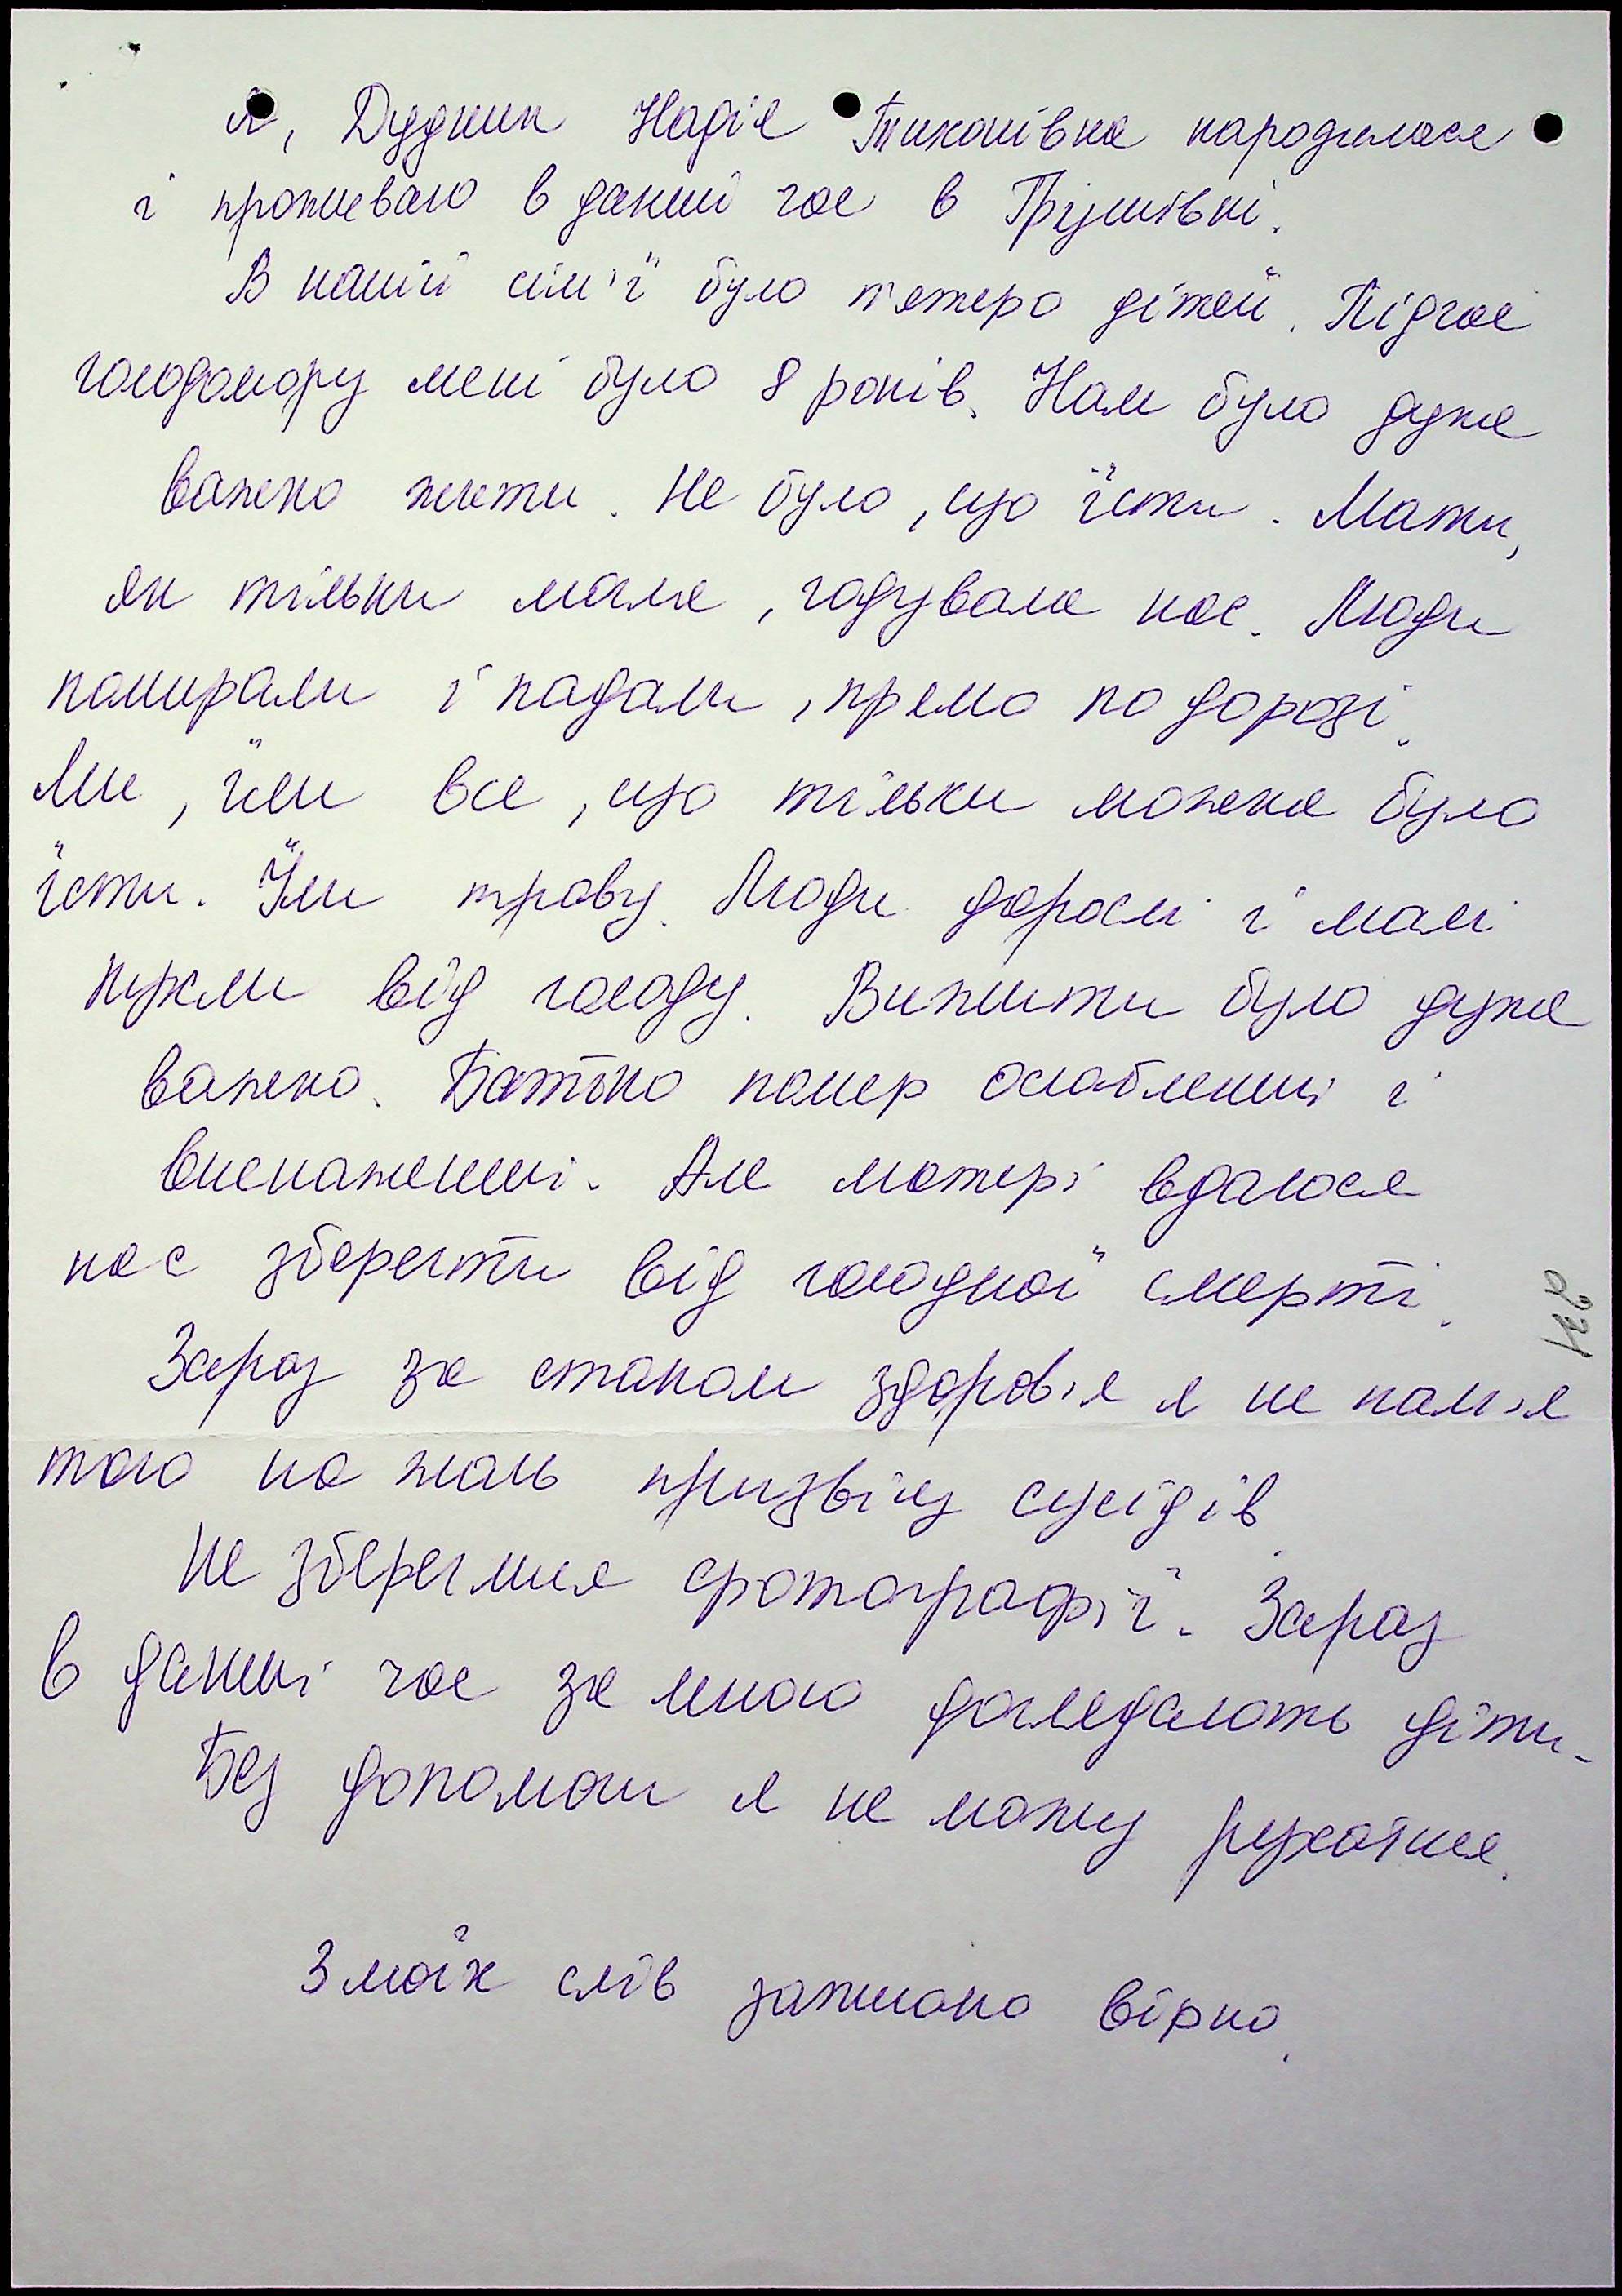 Я, Дудник Надія Тихонівна народилася
і проживаю в даний час в Грушівкі.
В нашій сім'ї було п'ятеро дітей. Підчас
голодомору мені було 8 років. Нам було дуже
важко жити. Не було, що їсти. Мати,
як тільки могла, годувала нас. Люди
помирали і падали, прямо по дорозі.
Ми, їли все, що тільки можна було
їсти. Їли траву. Люди дорослі і малі
пухли від голоду. Вижити було дуже
важко. Батько помер ослаблений і
виснажений. Але матері вдалося
нас зберегти від голодної смерті.
Зараз за станом здоров'я я не пам'я
таю на жаль призвіщ сусідів.
Не збереглися фотографії. Зараз
в даний час за мною доглядають діти.
Без допомоги я не можу рухатися.
З моїх слів записано вірно.